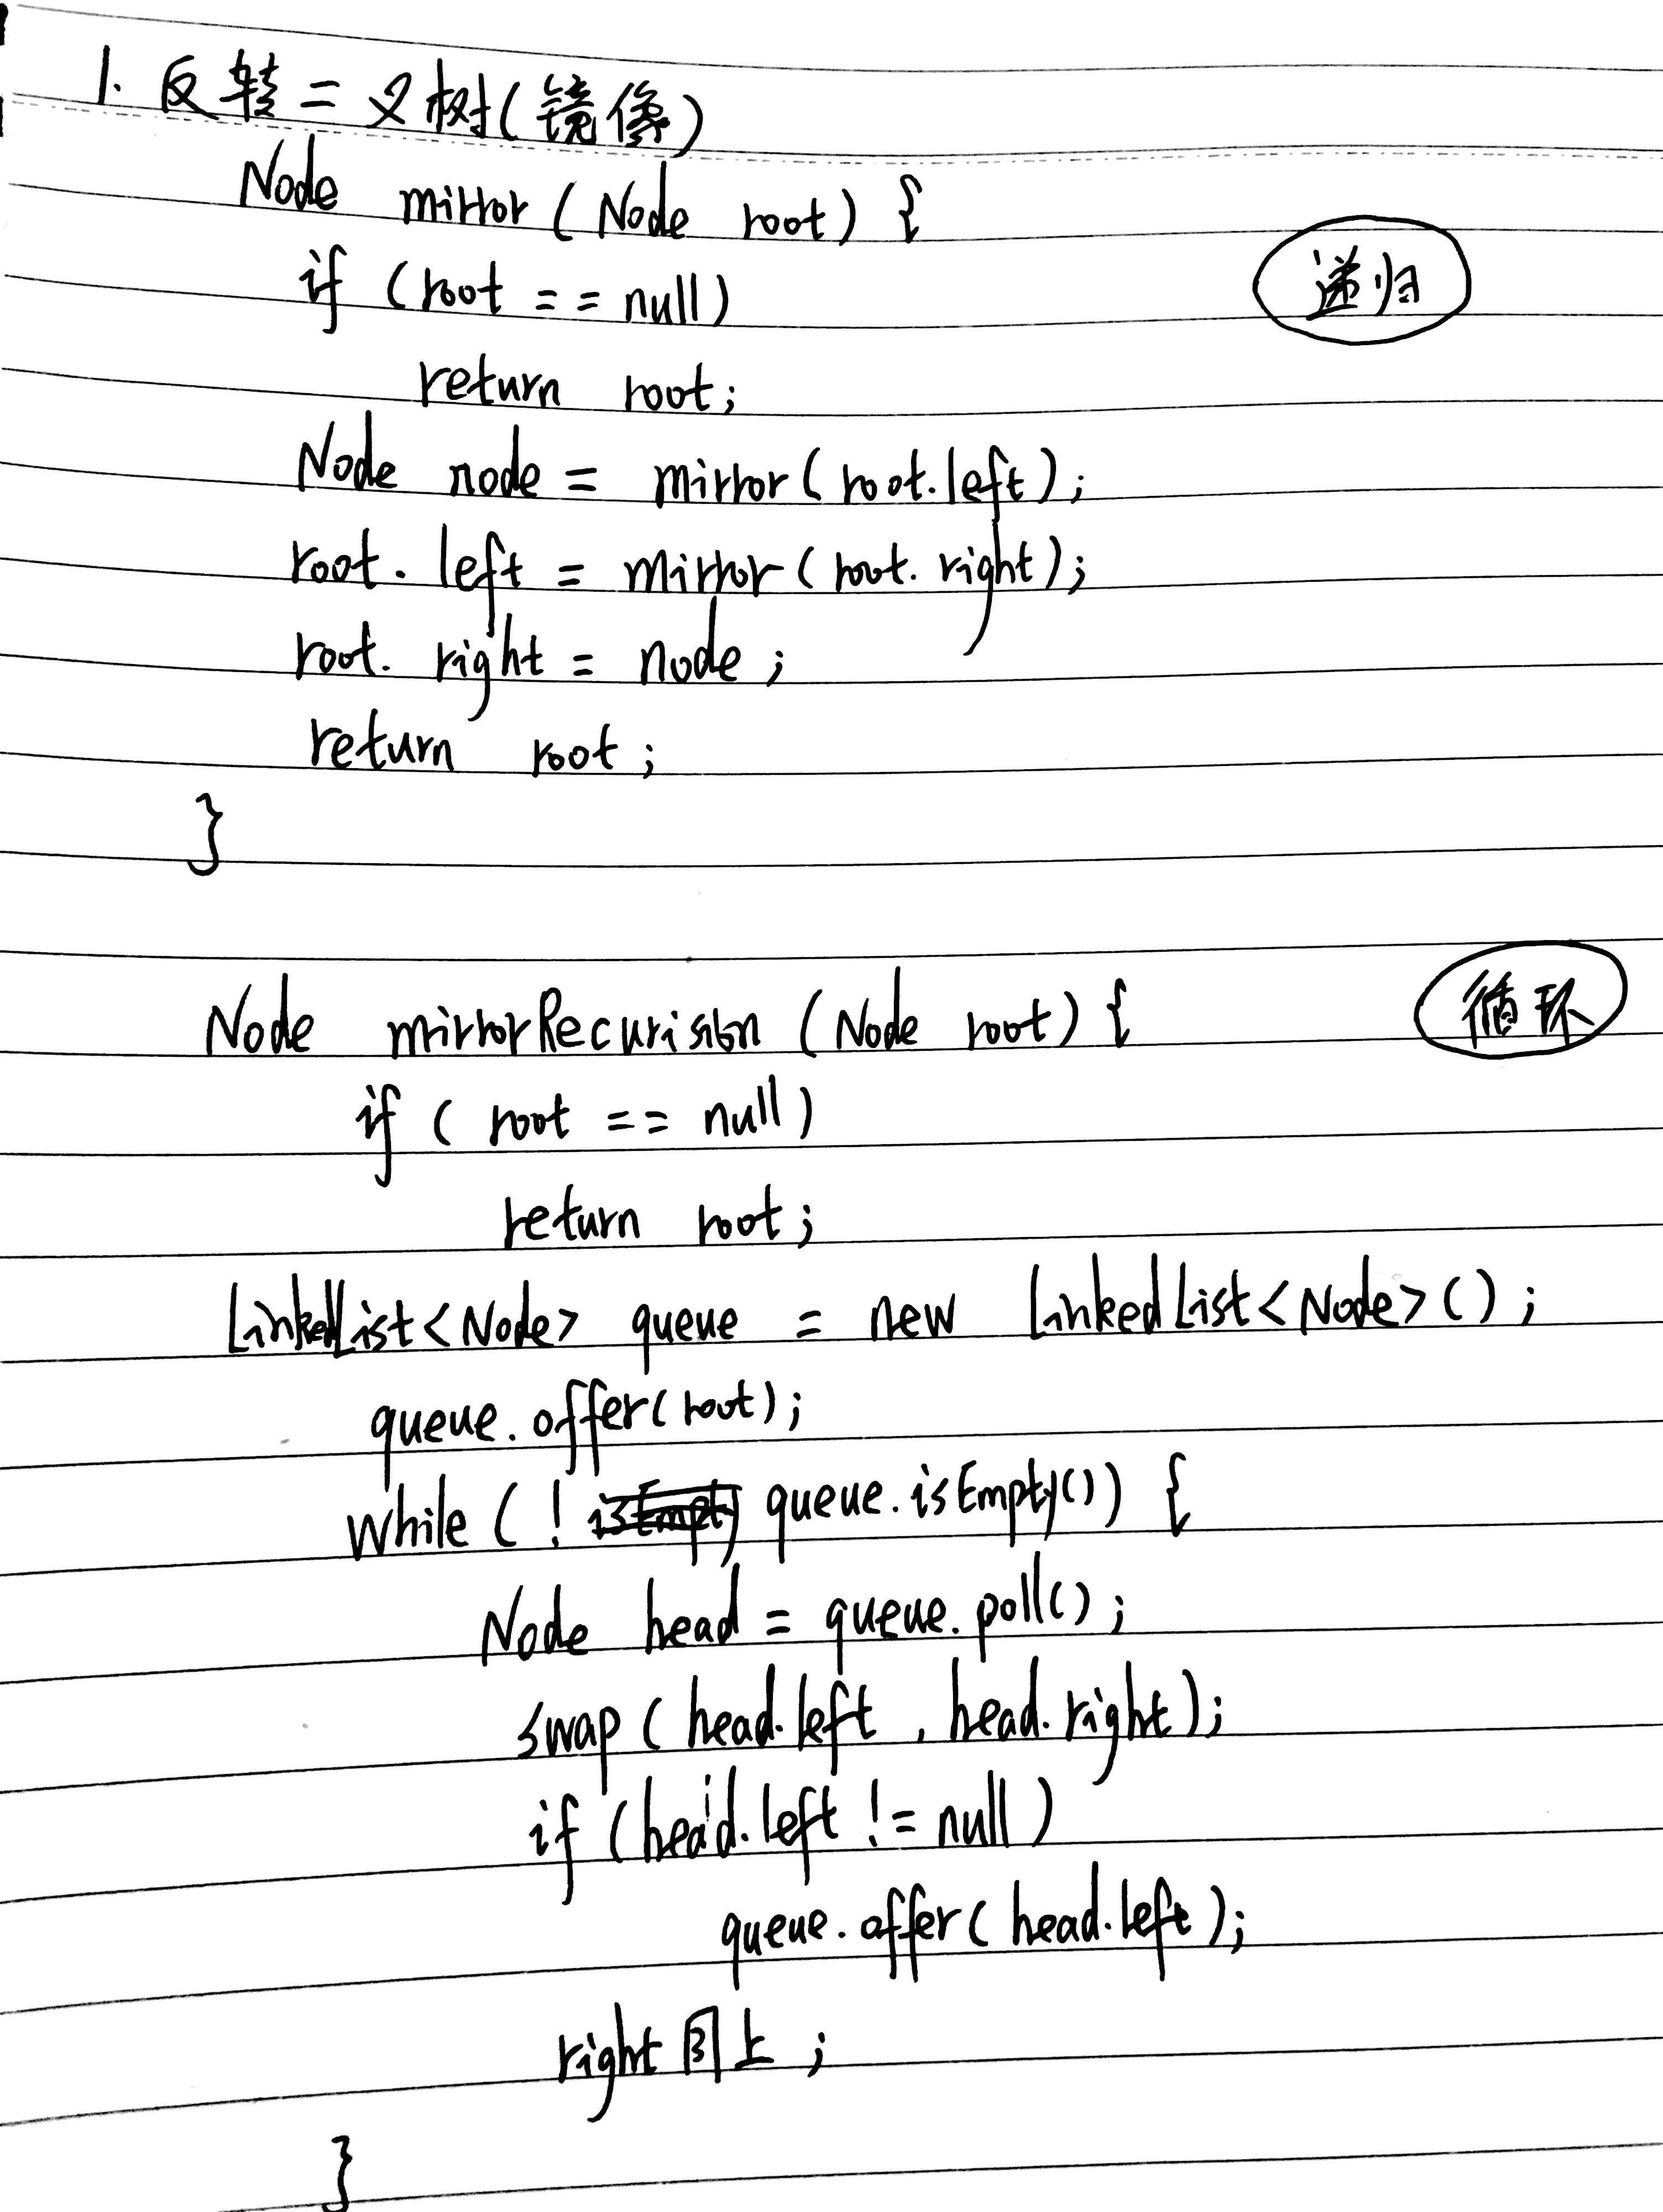 1. 反转二叉树(镜像)
Node mirror(Node root) {
递归
if (root == null)
return root;
Node node = mirror(root.left);
root.left = mirror(root.right);
root.right = node;
return root;
}
Node mirrorRecurision (Node root) {
循环
if (root == null)
return root;
LinkedList<Node> queue = new LinkedList<Node>();
queue.offer(root);
while (! isEmpty queue.isEmpty()) {
Node head = queue.poll();
swap(head.left, head.right);
if (head.left != null)
queue.offer(head.left);
right同上;
}